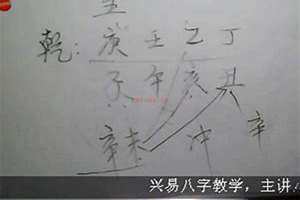 乾：庚 壬 乙 丁
子 午 亥 丑
辛未 冲 辛
兴易八字教学，主讲